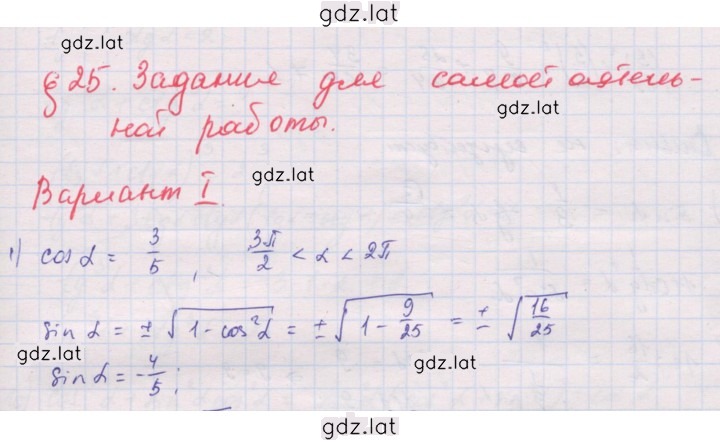 gdz.lat
gdz.lat
§ 25. Задания для самостоятель-
gdz.lat
ной работы.
gdz.lat
Вариант I.
1) cos α = 3/5, 3π/2 < α < 2π
sin α = ± √(1 - cos²α) = ± √(1 - 9/25) = ± √(16/25)
gdz.lat
gdz.lat
sin α = -4/5;
gdz.lat